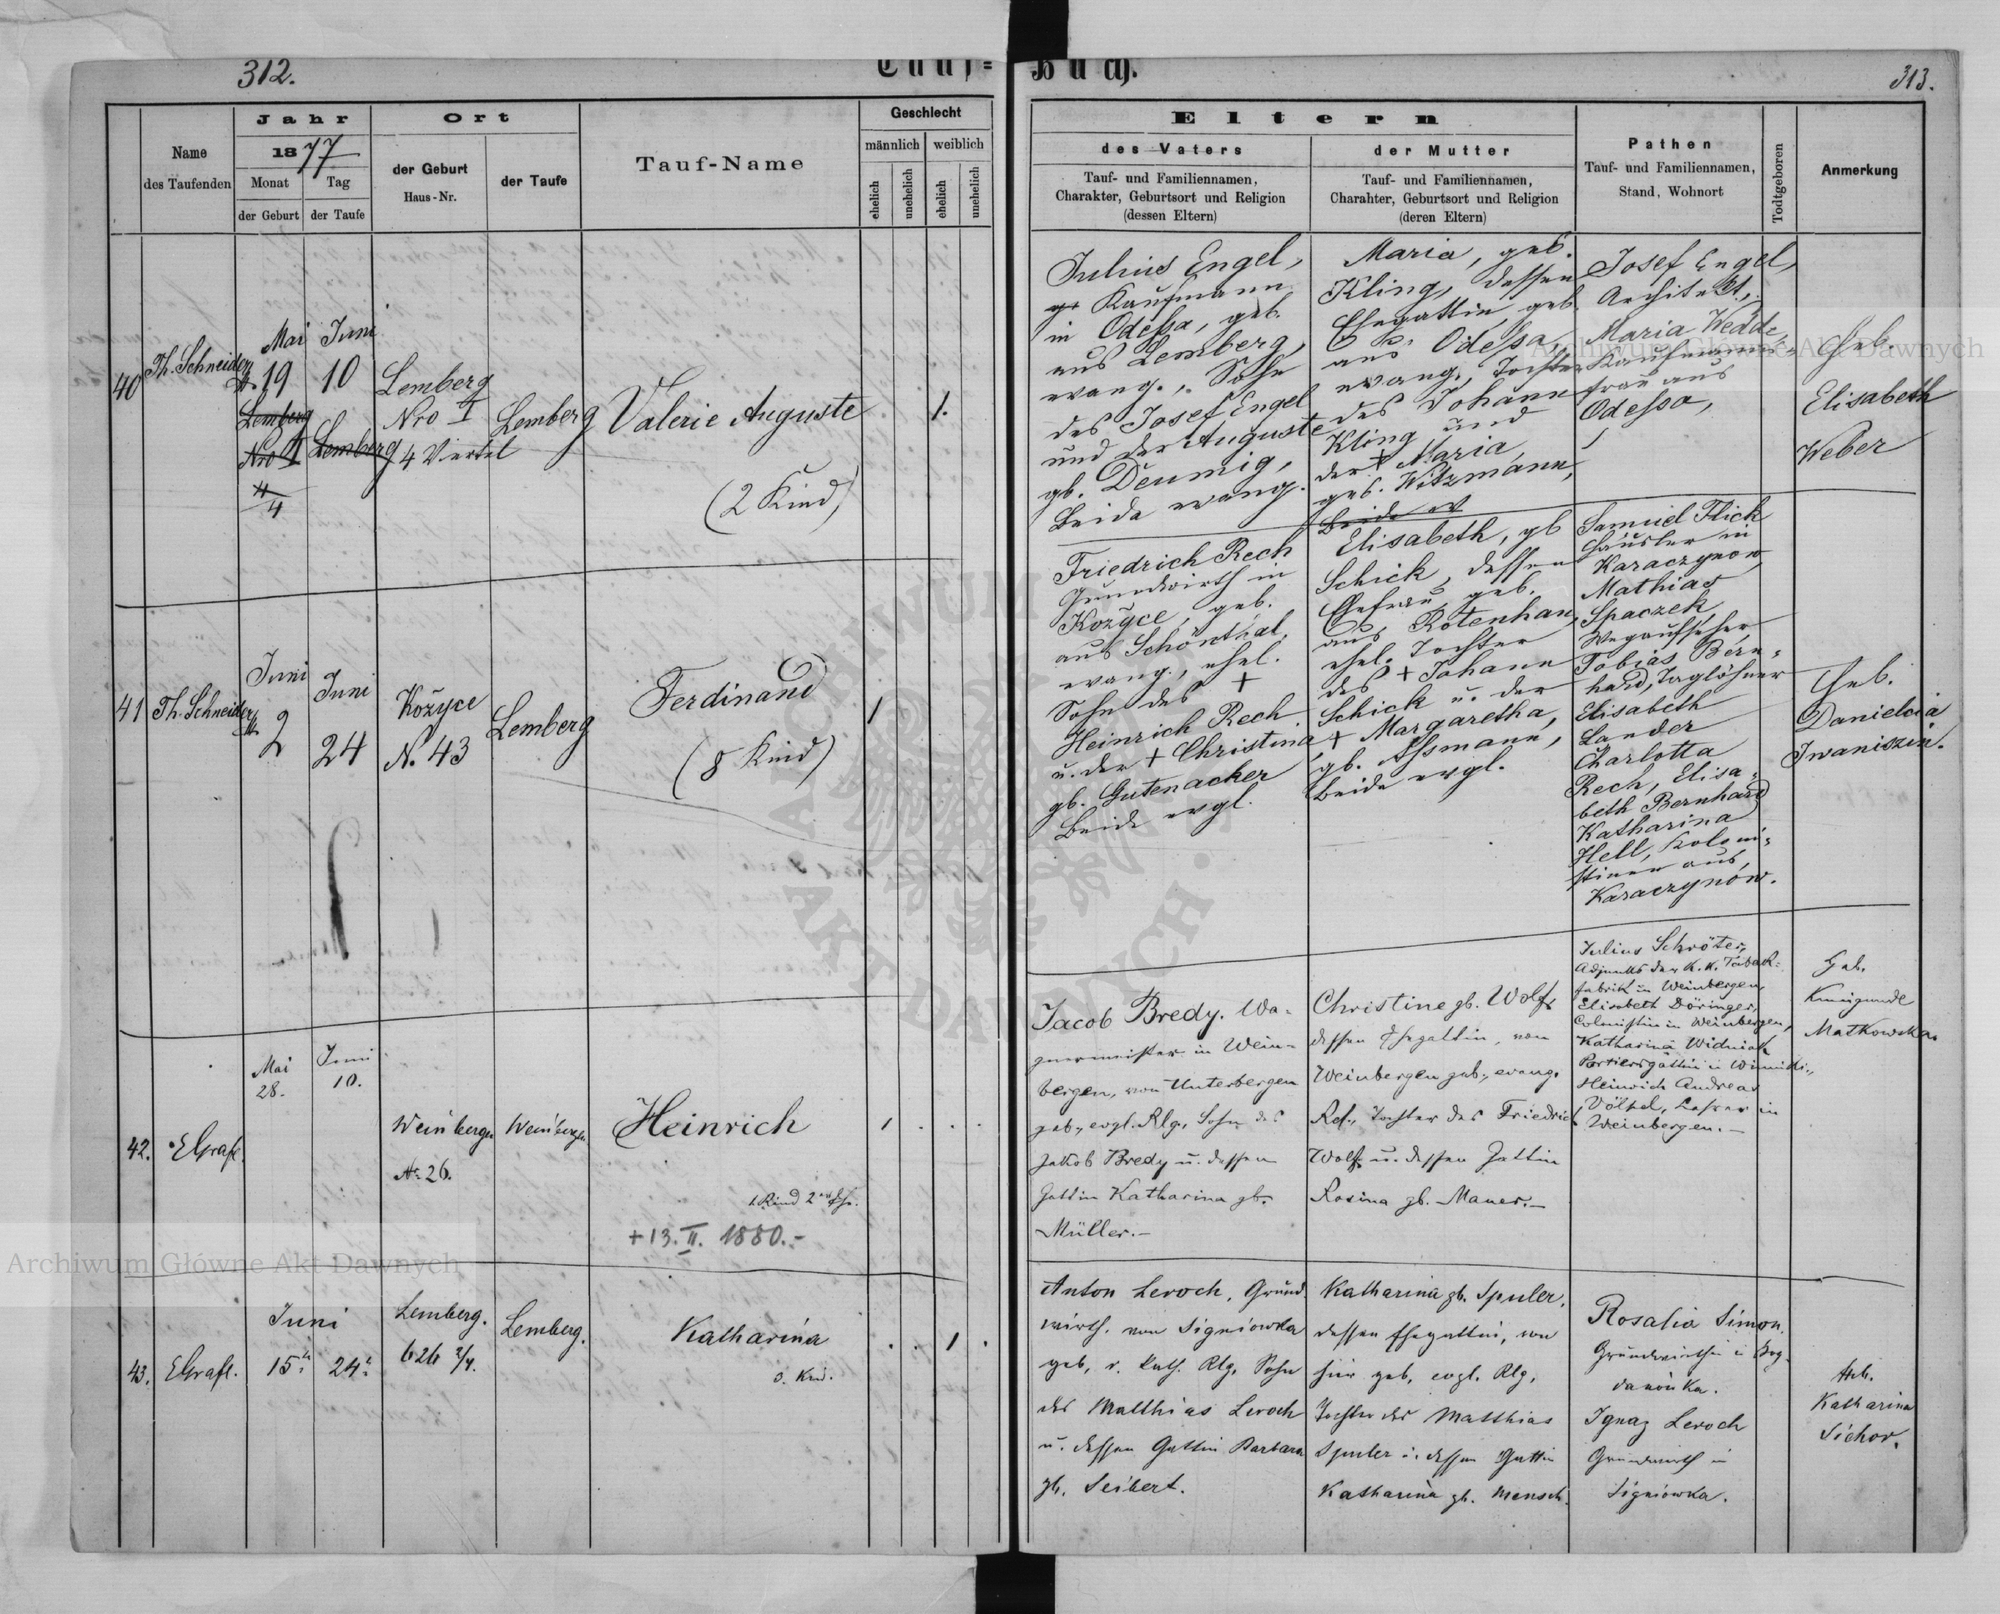 312.
Tauf=
Buch.
313.
Name
des Taufenden
Jahr
1877
Monat
Tag
der Geburt
der Taufe
Ort
der Geburt
Haus-Nr.
der Taufe
Tauf-Name
Geschlecht
männlich
weiblich
ehelich
unehelich
ehelich
unehelich
Eltern
des Vaters
Tauf- und Familiennamen,
Charakter, Geburtsort und Religion
(dessen Eltern)
der Mutter
Tauf- und Familiennamen,
Charahter, Geburtsort und Religion
(deren Eltern)
Pathen
Tauf- und Familiennamen,
Stand, Wohnort
Todtgeboren
Anmerkung
40
Th. Schneider
Mai
19
Lemberg
Nro I
4
Juni
10
Lemberg
Lemberg
Nro I
4 Viertel
Lemberg
Valerie Auguste
(2 Kind)
1.
Julius Engel,
Kaufmann
in Odessa, geb.
aus Lemberg,
evang., Sohn
des Josef Engel
und der Auguste
gb. Deumig,
Beide evang.
Maria, geb.
Kling, dessen
Ehegattin, geb.
aus Odessa,
evang. Tochter
des Johann
Kling und
der + Maria,
geb. Witzmann,
Beide ev
Josef Engel,
Architekt,
Maria Wedde,
Kaufmanns-
frau aus
Odessa,
Heb.
Elisabeth
Weber
41
Th. Schneider
Juni
2
Juni
24
Kožyce
N. 43
Lemberg
Ferdinand
(8 Kind)
1
Friedrich Rech
Grundwirth in
Kožyce, geb.
aus Schönthal,
evang., ehel.
Sohn des +
Heinrich Rech
u. der + Christina
gb. Gutenacker
Beide evgl.
Elisabeth, gb
Schick, dessen
Ehefrau, geb.
aus Rotenhan,
ehel. Tochter
des + Johann
Schick u. der
+ Margaretha,
gb. Assmann,
Beide evgl.
Samuel Flick
Häusler in
Karaczynow
Mathias
Spaczek,
Wegaufseher
Tobias Bern-
hard, Taglöhner
Elisabeth
Lander
Charlotta
Rech, Elisa-
beth Bernhard
Katharina
Hell, Koloni-
stinen aus
Karaczynów.
Heb.
Danielcia
Iwaniszin.
42.
EGrafl.
Mai
28.
Juni
10.
Weinbergen
Nr. 26.
Weinbergen
Heinrich
1. Kind 2ter Ehe.
+ 13. II. 1880.-
1
Jacob Bredy. Wa-
gnermeister in Wein-
bergen, von Unterbergen
geb., evgl. Rlg., Sohn des
Jakob Bredy u. dessen
Gattin Katharina gb.
Müller.-
Christine gb. Wolf,
dessen Ehegattin, von
Weinbergen geb., evang.
Rel., Tochter des Friedrich
Wolf u. dessen Gattin
Rosina gb. Mauer.-
Julius Schröter,
Adjunkt der K. K. Tabak-
fabrik in Weinbergen,
Elisabeth Döringer,
Colonistin in Weinbergen,
Katharina
Portiersgattin in Winniki,
Heinrich Andreas
Völkel, Lehrer in
Weinbergen.-
Heb.
Kunigunde
Matkowska
43.
EGrafl.
Juni
15.
24.
Lemberg.
626 2/4.
Lemberg.
Katharina
3. Kind.
1
Anton Leroch, Grund-
wirth. von Signiowka
geb., r. kath. Rlg, Sohn
des Matthias Leroch
u. dessen Gattin Barbara
gb. Seibert.
Katharina gb. Spuler,
dessen Ehegattin, von
hier geb., evgl. Rlg,
Tochter des Matthias
Spuler u. dessen Gattin
Katharina gb. Mensch.
Rosalia Simon
Grundwirthin in Bog-
danówka.
Ignaz Leroch
Grundwirth in
Signiowka.
Heb.
Katharina
Sichor.
Archiwum Główne Akt Dawnych
Archiwum Główne Akt Dawnych
ARCHIWUM GŁÓWNE AKT DAWNYCH